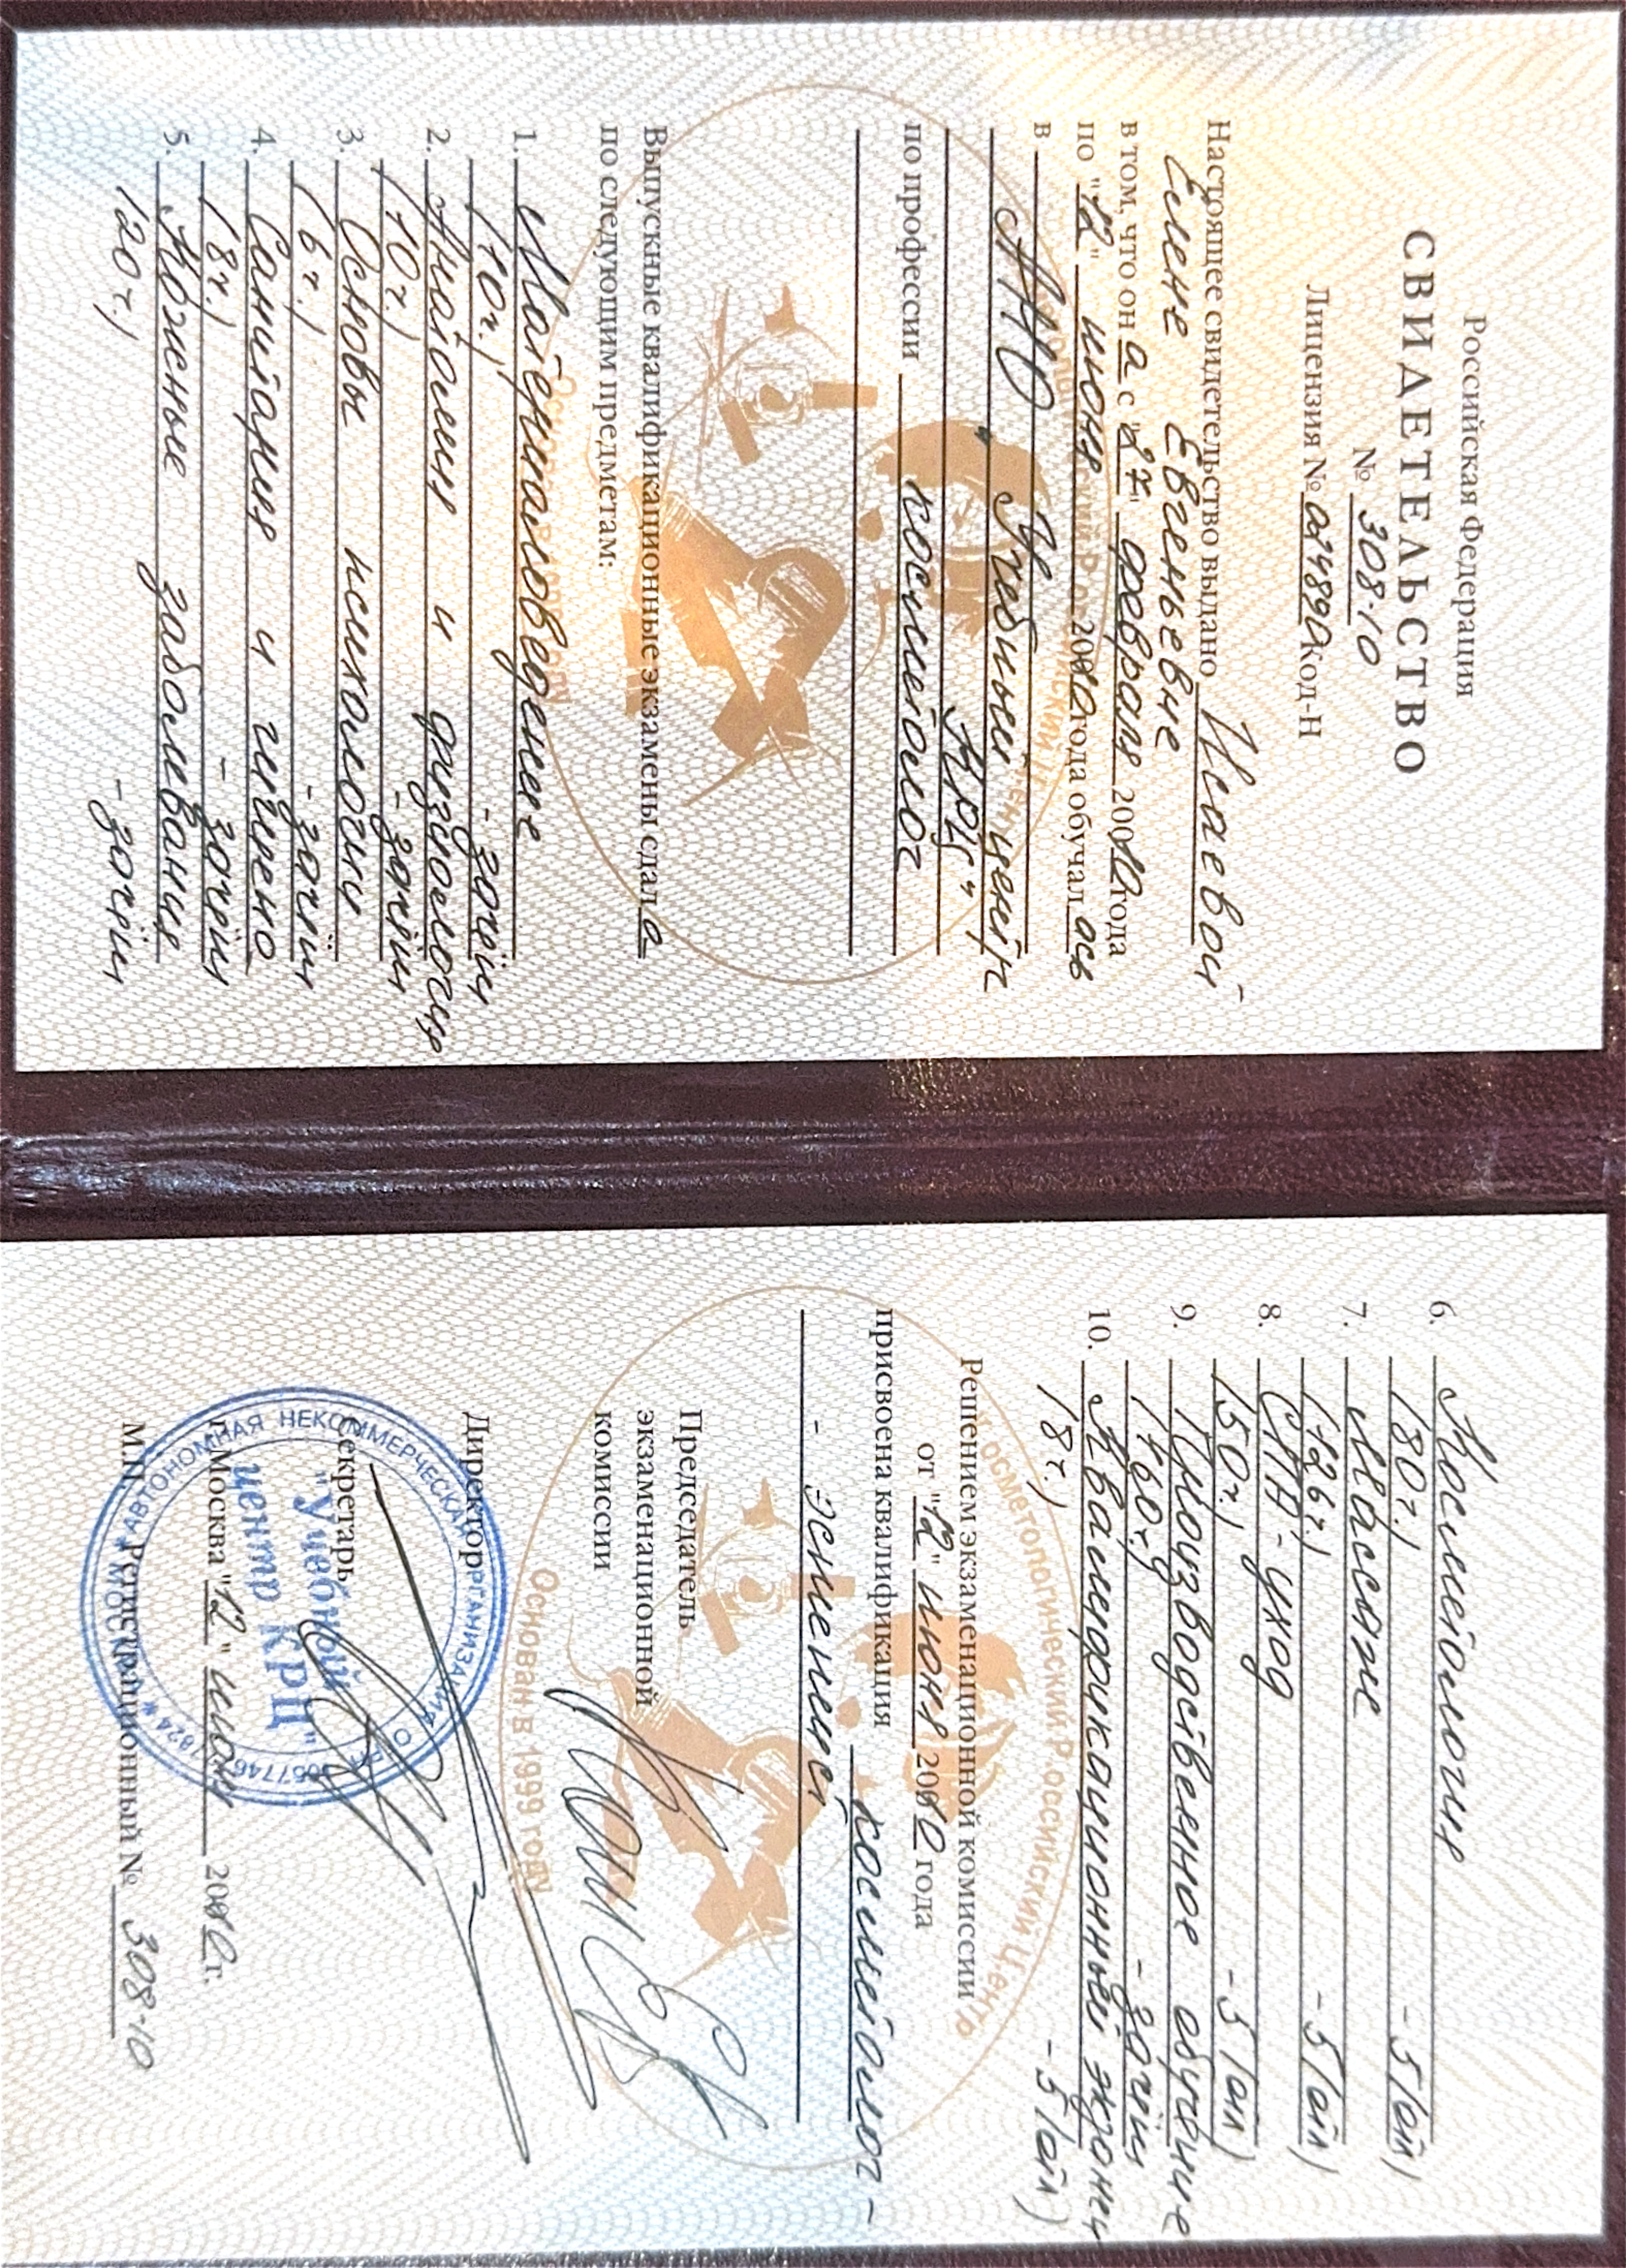 Российская Федерация
СВИДЕТЕЛЬСТВО
№ 308-10
Лицензия № 024890 Код-Н
Настоящее свидетельство выдано Исаевой
Елене Евгеньевне
в том, что он а с "27" февраля 2010 года
по "12" июня 2010 года обучал ась
в АНО "Учебный центр
КРЦ"
по профессии косметолог
Выпускные квалификационные экзамены сдал а
по следующим предметам:
1. Материаловедение
(10 ч.) - зачёт
2. Анатомия и физиология
(10 ч.) - зачёт
3. Основы психологии
(6 ч.) - зачёт
4. Санитария и гигиена
(8 ч.) - зачёт
5. Кожные заболевания
(20 ч.) - зачёт
6. Косметология
(80 ч.) - 5 (отл)
7. Массаж
(126 ч.) - 5 (отл)
8. СПА-уход
(50 ч.) - 5 (отл)
9. Производственное обучение
(160 ч.) - зачёт
10. Квалификационный экзамен
(8 ч.) - 5 (отл)
Решением экзаменационной комиссии
от "12" июня 2010 года
присвоена квалификация косметолог-
- эстетист
Председатель
экзаменационной
комиссии
Директор
Секретарь
г. Москва "12" июня 2010 г.
М.П. Регистрационный № 308-10
АВТОНОМНАЯ НЕКОММЕРЧЕСКАЯ ОРГАНИЗАЦИЯ
"Учебный
центр КРЦ"
МОСКВА
Косметологический Российский Центр
Основан в 1999 году